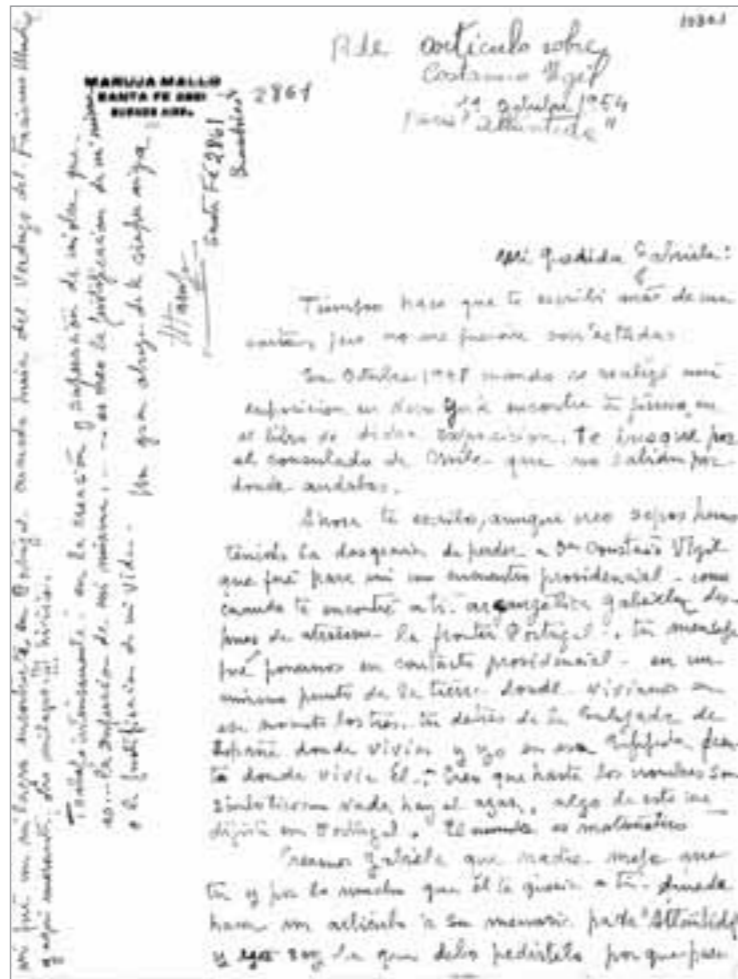 10301
Pide artículo sobre
Constancio Vigil
11 octubre 1954
para "Atlántida"
MARUJA MALLO
SANTA FE 2861
BUENOS AIRES
2861
Santa Fé 2861
Buenos Aires
Mi querida Gabriela:
Tiempo hace que te escribí más de una
carta, pero no me fueron contestadas.
En Octubre 1948 cuando se realizó mi
exposicion en New York encontré tu firma en
el libro de dicha exposicion. Te busqué por
el consulado de Chile que no sabían por
donde andabas.
Ahora te escribo, aunque creo sepas hemos
tenido la desgracia de perder a Dn Constancio Vigil
que fué para mi un encuentro providencial - como
cuando te encontré a ti arcangélica Gabriela des-
pues de atravesar la frontera Portugal. tu mensaje
fué ponernos en contacto providencial - en un
mismo punto de la tierra donde vivíamos en
ese momento los tres. tu detrás de la Embajada de
España donde vivías y yo en esa
donde vivía Él. Creo que hasta los nombres son
simbólicos nada hay al azar, algo de esto me
dijiste en Portugal. El mundo es matemático
Creemos Gabriela que nadie mejor que
tu y por lo mucho que él te quería a ti. puede
hacer un artículo a su memoria para "Atlántida"
y yo soy la que debo pedírtelo porque para
mi fué un milagro encontrarte en Portugal cuando huía del Verdugo del Fascismo
y aquí
Trabajo intensamente en la creación y superación de mi obra que
es la superación de mi misma, es creo la justificación de mi misma
o la justificación de mi vida.
Un gran abrazo de tu siempre amiga
Maruja